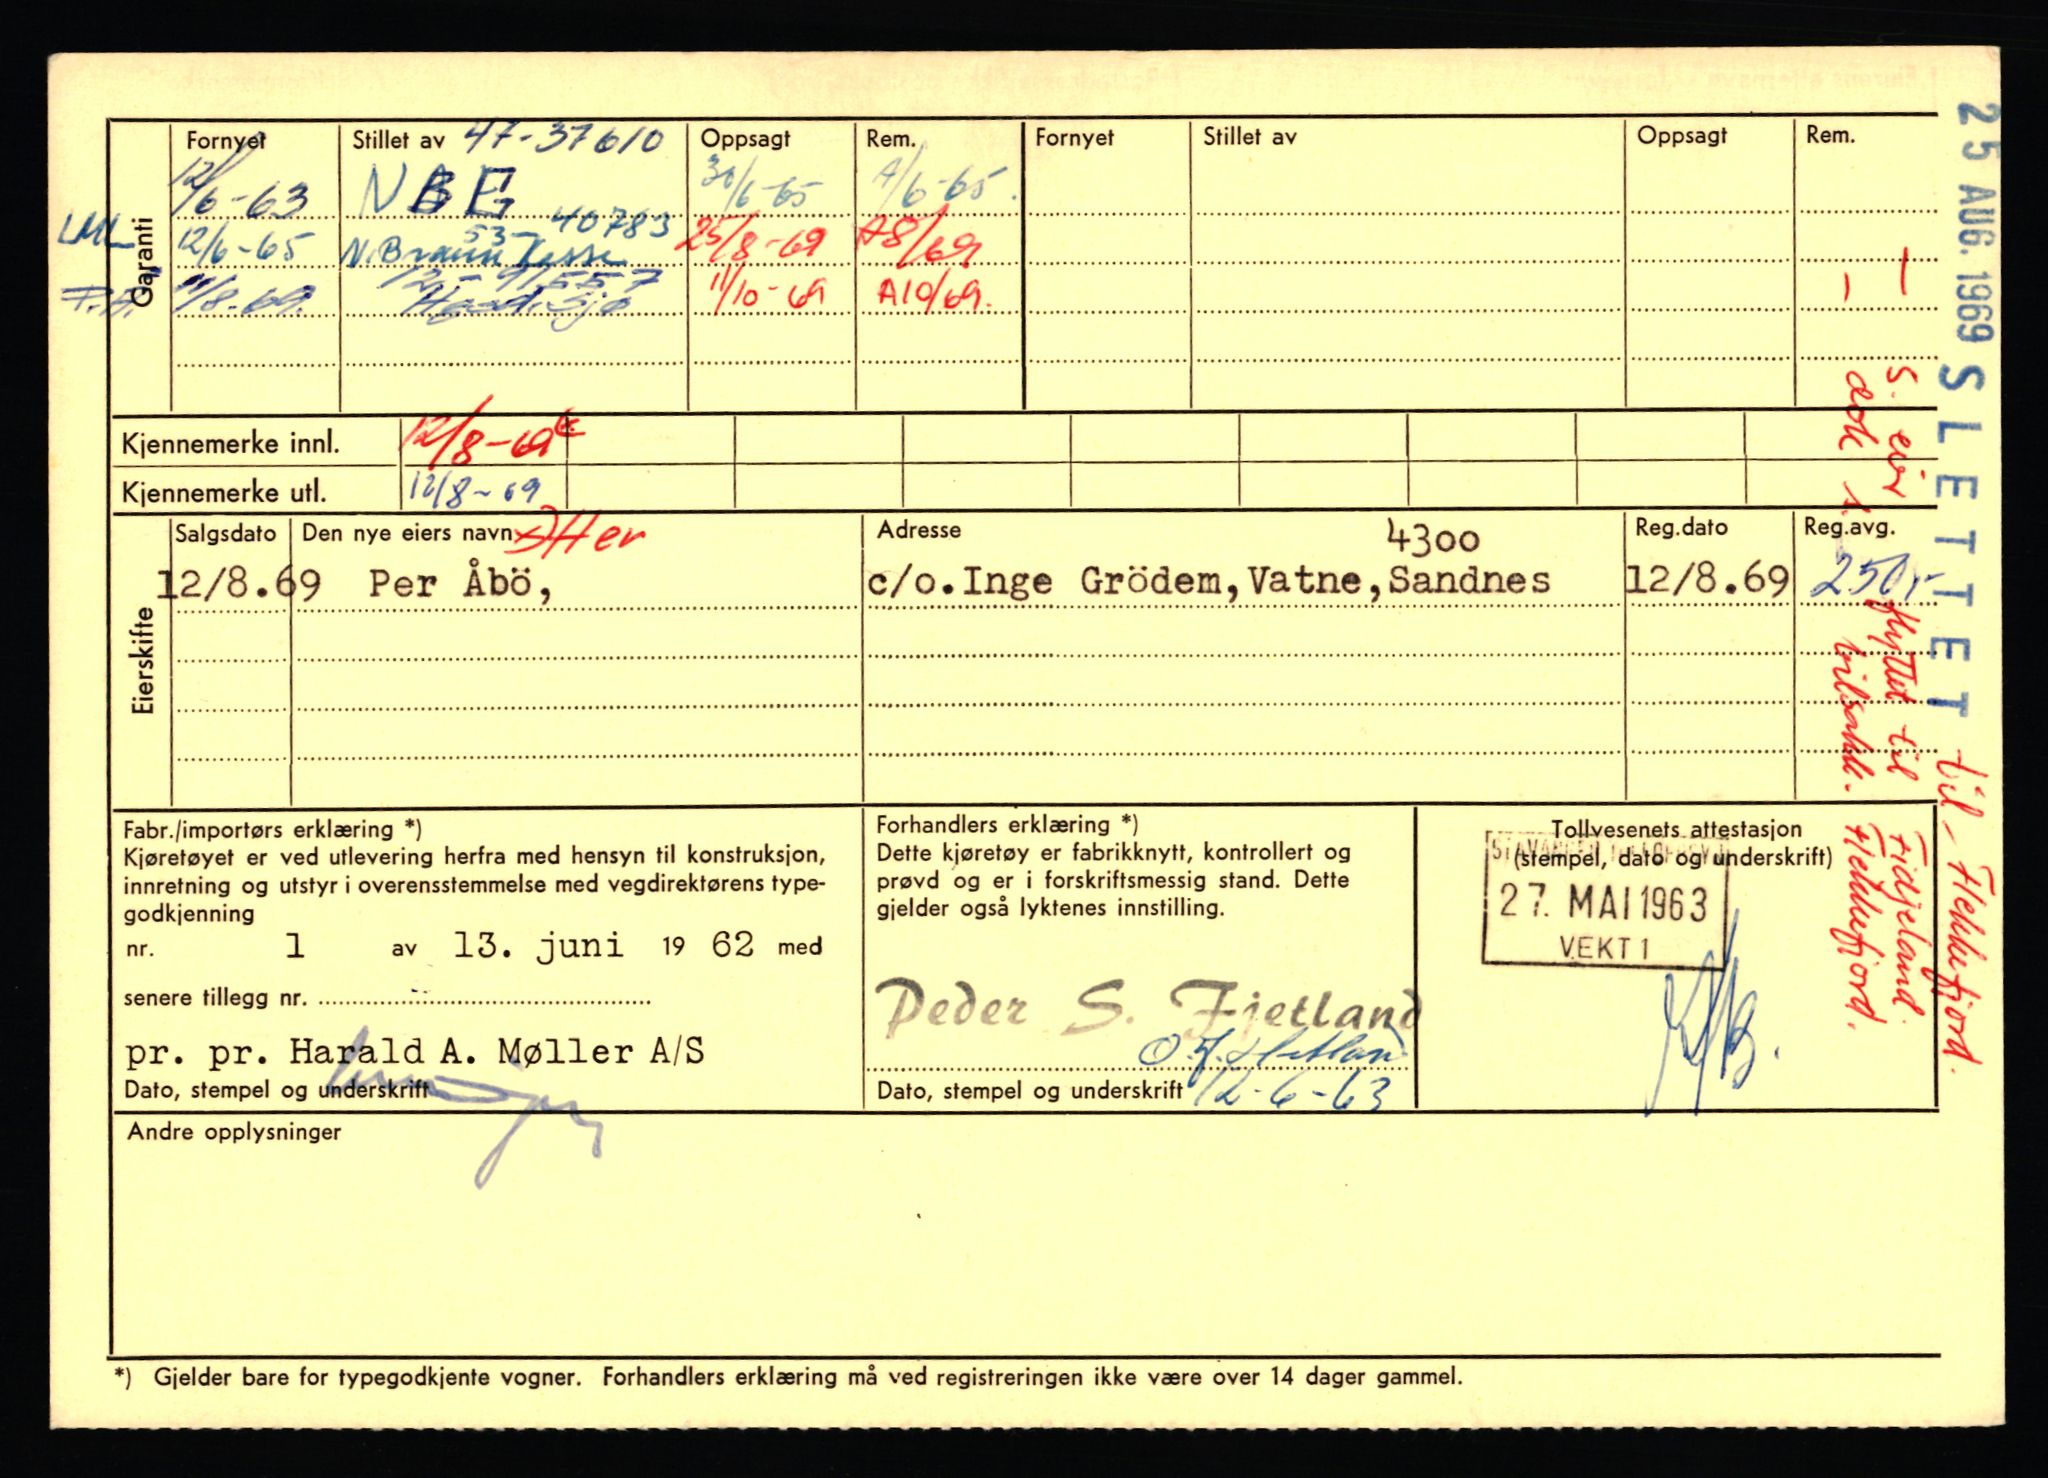 Garanti
Fornyet Stillet av 47-37610 Oppsagt Rem. Fornyet Stillet av Oppsagt Rem.
12/6-63 NBE 30/6-65 A/6-65.
LML 12/6-65 N. Brann Kasse 53-40783 25/8-69 A8/69
8-69. 12-41557 11/10-69 A10/69.
Kjennemerke innl. 12/8-69
Kjennemerke utl. 12/8-69
Eierskifte
Salgsdato Den nye eiers navn Adresse 4300 Reg.dato Reg.avg.
12/8.69 Per Åbö, c/o.Inge Grödem,Vatne,Sandnes 12/8.69 250,-
Fabr./importørs erklæring *)
Kjøretøyet er ved utlevering herfra med hensyn til konstruksjon,
innretning og utstyr i overensstemmelse med vegdirektørens type-
godkjenning
nr. 1 av 13. juni 19 62 med
senere tillegg nr.
pr. pr. Harald A. Møller A/S
Dato, stempel og underskrift
Forhandlers erklæring *)
Dette kjøretøy er fabrikknytt, kontrollert og
prøvd og er i forskriftsmessig stand. Dette
gjelder også lyktenes innstilling.
Peder S. Fjetland
Dato, stempel og underskrift 12-6-63
Tollvesenets attestasjon
(stempel, dato og underskrift)
27. MAI 1963
VEKT 1
Andre opplysninger
*) Gjelder bare for typegodkjente vogner. Forhandlers erklæring må ved registreringen ikke være over 14 dager gammel.
25 AUG. 1969 SLETTET til - Flekkefjord.
eier flyttet til Fidjeland.
Flekkefjord.